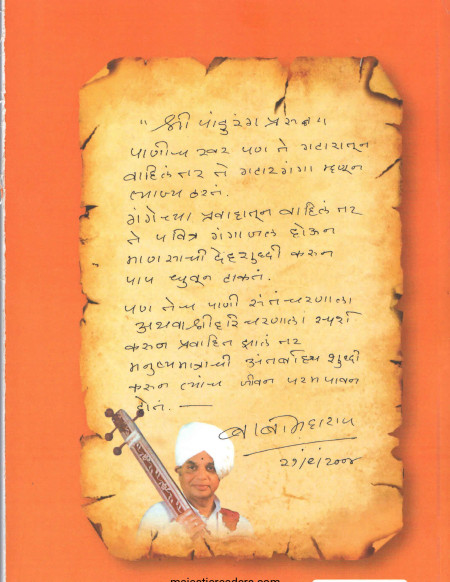 "श्री पांडुरंग प्रसन्न"
पाणीच खरं पण ते गटारातून
वाहिलं तर ते गटारगंगा म्हणून
त्याज्य ठरतं.
गंगेच्या प्रवाहातून वाहिलं तर
ते पवित्र गंगाजल होऊन
माणसाची देहशुद्धी करून
पाप धुवून टाकतं.
पण तेच पाणी संतचरणाला
अथवा श्रीहरिचरणाला स्पर्श
करून प्रवाहित झालं तर
मनुष्यमात्राची अंतर्बाह्य शुद्धी
करून त्यांचं जीवन परमपावन
होतं. —
बाबामहाराज
majesticreaders.com